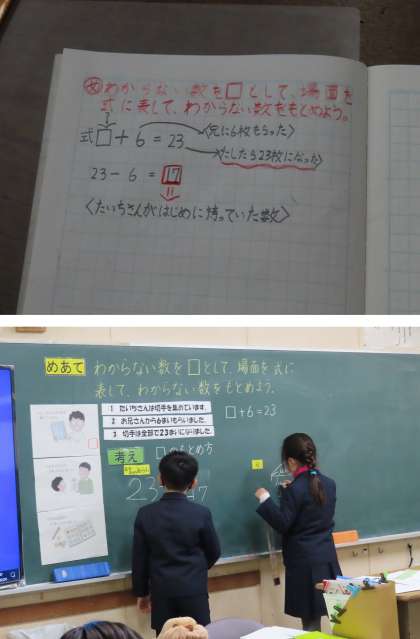 め わからない数を□として、場面を
式に表して、わからない数をもとめよう。
式□+6=23
〈兄に6枚もらった〉
〈たしたら23枚になった〉
23-6=17
〈たいちさんがはじめに持っていた数〉
めあて わからない数を□として、場面を式に
表して、わからない数をもとめよう。
1 たいちさんは切手を集めています。
2 お兄さんから6まいもらいました。
3 切手は全部で23まいになりました。
□+6=23
考え □のもとめ方
23
17